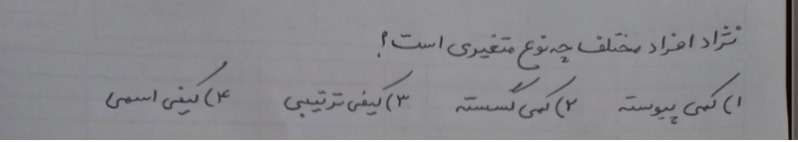 نژاد افراد مختلف چه نوع متغیری است؟
۱) کمی پیوسته ۲) کمی گسسته ۳) کیفی ترتیبی ۴) کیفی اسمی